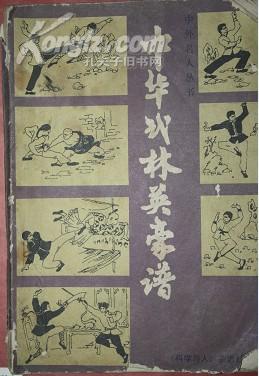 Kongfz.com
孔夫子旧书网
中外名人丛书
中华武林英豪谱
《科学与人》杂志社